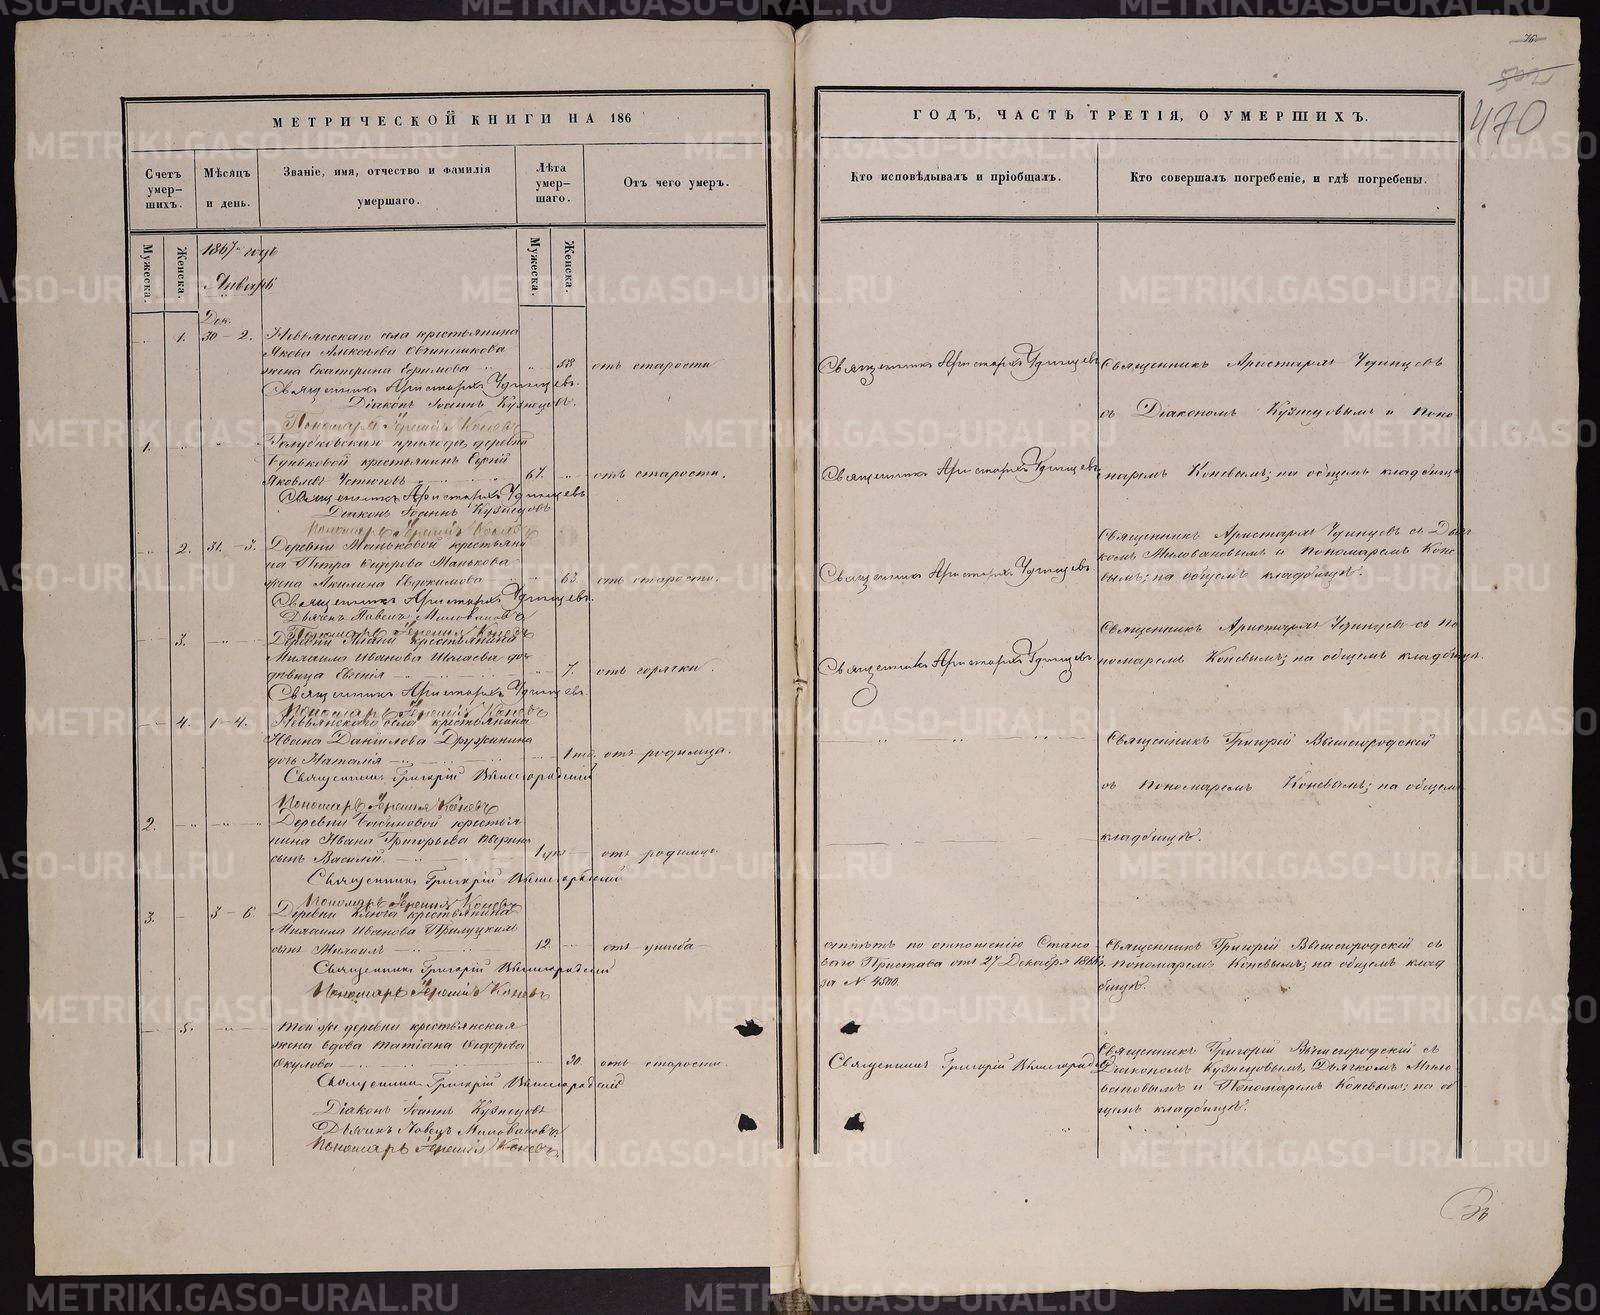 76
502
470
МЕТРИЧЕСКОЙ КНИГИ НА 186
Счетъ умер-
шихъ.
Мѣсяцъ
и день.
Званіе, имя, отчество и фамилія
умершаго.
Лѣта
умер-
шаго.
Отъ чего умеръ.
Мужеска.
Женска.
Мужеска.
Женска.
1867 годъ
Январь
Дек.
1. 30 – 2. Невьянскаго села крестьянина
Якова Алексѣева Овчинникова
жена Екатерина Ефимова 58 отъ старости
Священникъ Аристархъ Удинцевъ.
Діаконъ Іоаннъ Кузнецовъ.
Пономарь Іеремій Коневъ
1. Голубковскаго прихода деревни
крестьянинъ
Яковлевъ Устюговъ 67. отъ старости.
Священникъ Аристархъ Удинцевъ
Діаконъ Іоаннъ Кузнецовъ
Пономарь Іеремій Коневъ
2. 31. – 3. Деревни Маньковой крестьяни
на Петра Манькова
жена Акилина Евдокимова 63. отъ старости.
Священникъ Аристархъ Удинцевъ.
Дьячекъ Павелъ Миловановъ
Пономарь Іеремія Коневъ
3. Деревни крестьянина
Михаила Иванова до-
Евгенія 7. отъ горячки.
Священникъ Аристархъ Удинцевъ.
Пономарь Іеремій Коневъ
4. 1 – 4. Невьянскаго села крестьянина
Ивана Данилова Дружинина
дочь Наталія 1 отъ родимца.
Священникъ Григорій Вышегородскій
Пономарь Іеремія Коневъ
2. Деревни крестья
нина Ивана Григорьева
сынъ Василій. 1 отъ родимца
Священникъ Григорій Вышегородскій
Пономарь Іеремія Коневъ
3. 3 – 6. Деревни Ключа крестьянина
Михаила Иванова
сынъ Михаилъ 12. отъ ушиба
Священникъ Григорій Вышегородскій
Пономарь Іеремій Коневъ
5. Той же деревни крестьянская
жена вдова Татіана Ѳедорова
Окулова 90. отъ старости.
Священникъ Григорій Вышегородскій
Діаконъ Іоаннъ Кузнецовъ
Дьячекъ Павелъ Миловановъ.
Пономарь Іеремій Коневъ
ГОДЪ, ЧАСТЬ ТРЕТІЯ, О УМЕРШИХЪ.
Кто исповѣдывалъ и пріобщалъ.
Кто совершалъ погребеніе, и гдѣ погребены.
Священникъ Аристархъ Удинцевъ Священникъ Аристархъ Удинцевъ
съ Діакономъ Кузнецовымъ и Поно
Священникъ Аристархъ Удинцевъ маремъ Коневымъ; на общемъ кладбищѣ
Священникъ Аристархъ Удинцевъ съ Дьяч
комъ Миловановымъ и Пономаремъ Коне
Священникъ Аристархъ Удинцевъ. вымъ; на общемъ кладбищѣ.
Священникъ Аристархъ Удинцевъ съ По
Священникъ Аристархъ Удинцевъ. номаремъ Коневымъ; на общемъ кладбищѣ.
Священникъ Григорій Вышегородскій
съ Пономаремъ Коневымъ; на общемъ
кладбищѣ.
отпѣтъ по отношенію Стано Священникъ Григорій Вышегородскій съ
ваго Пристава отъ 27 Декабря 1866 г. Пономаремъ Коневымъ; на общемъ клад
за № 4580. бищѣ.
Священникъ Григорій Вышегородскій съ
Священникъ Григорій Вышегородскій Діакономъ Кузнецовымъ, Дьячкомъ Мило
вановымъ и Пономаремъ Коневымъ; на об
щемъ кладбищѣ.
METRIKI.GASO-URAL.RU